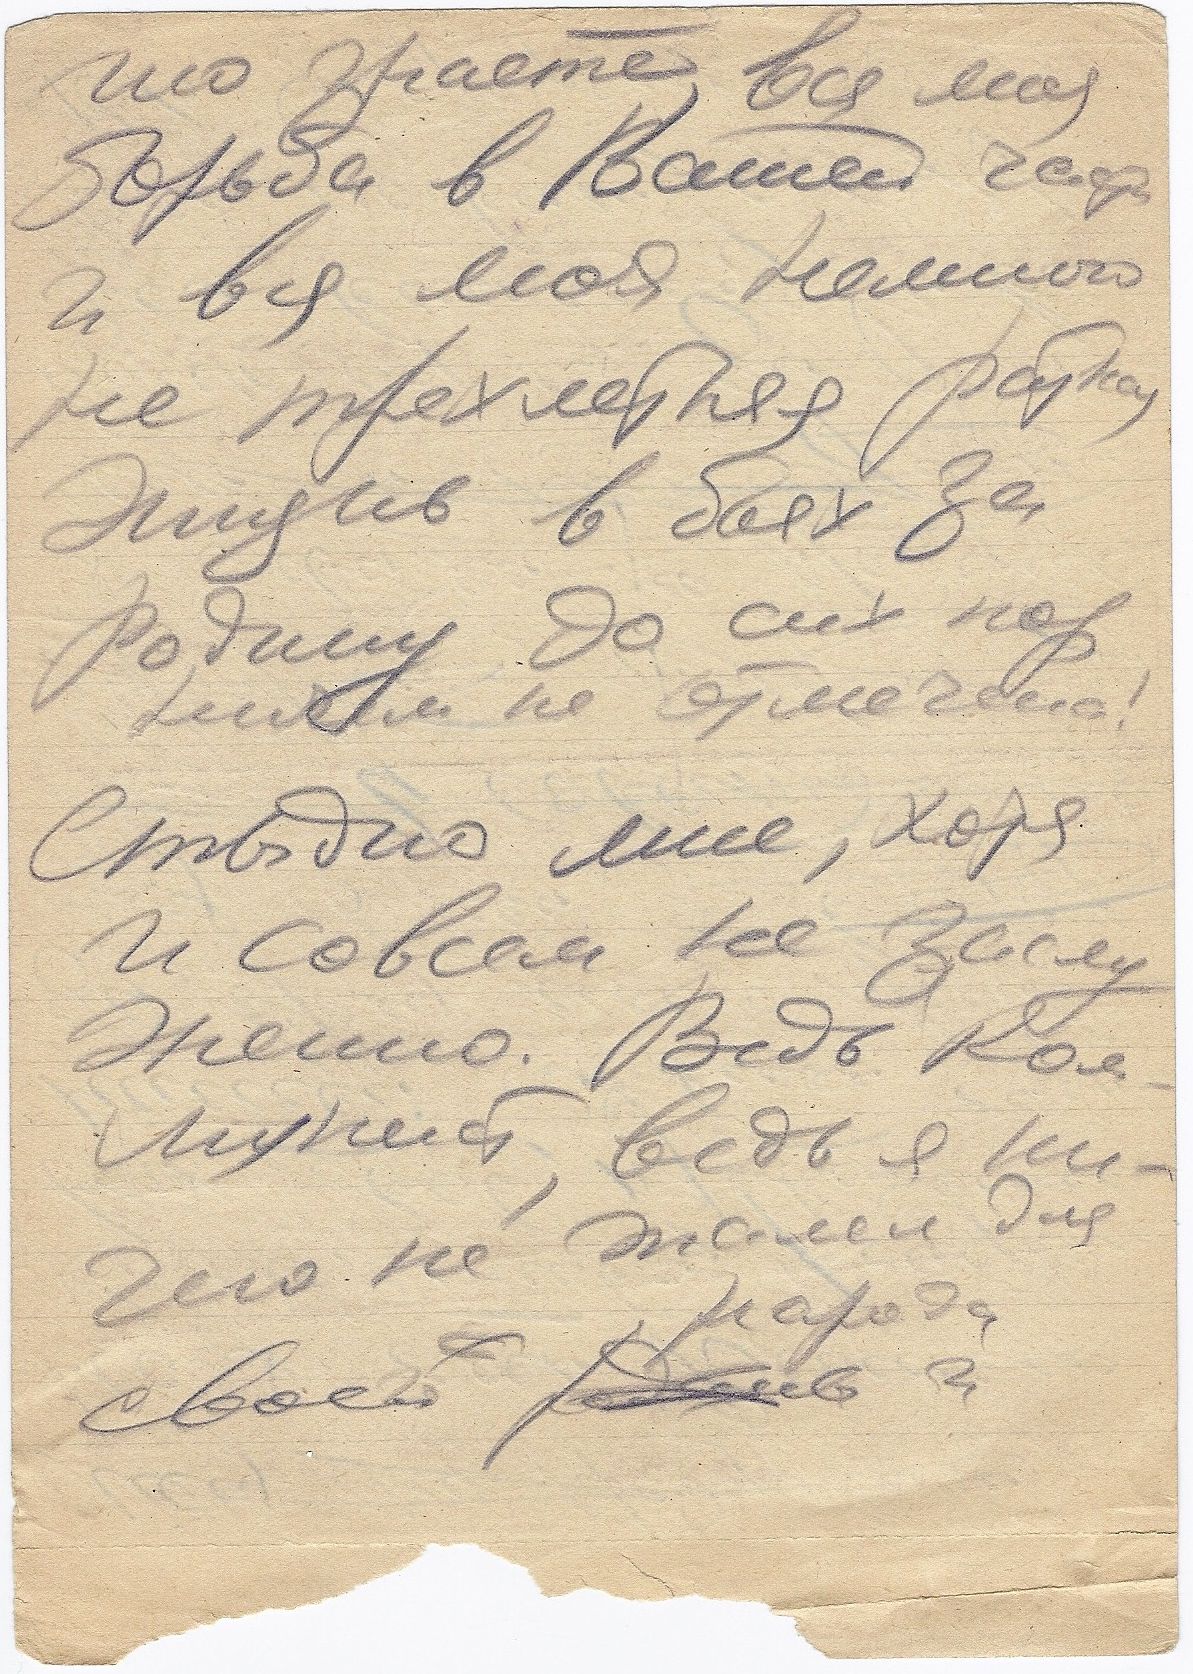 что знаете, вся моя
борьба в Вашей части
и вся моя немного
не трехлетняя ратная
жизнь в боях за
Родину до сих пор
никем не отмечена!
Стыдно мне, хотя
и совсем не заслу
женно. Ведь ком-
мунист, ведь я ни-
чего не жалел для
народа
своей и